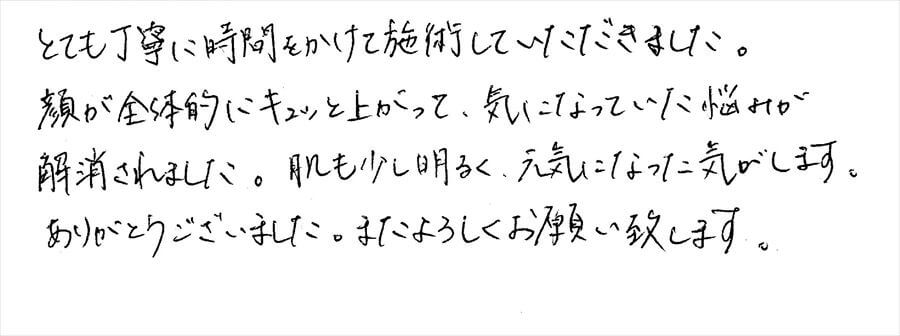 とても丁寧に時間をかけて施術していただきました。
顔が全体的にキュッと上がって、気になっていた悩みが
解消されました。肌も少し明るく、元気になった気がします。
ありがとうございました。またよろしくお願い致します。